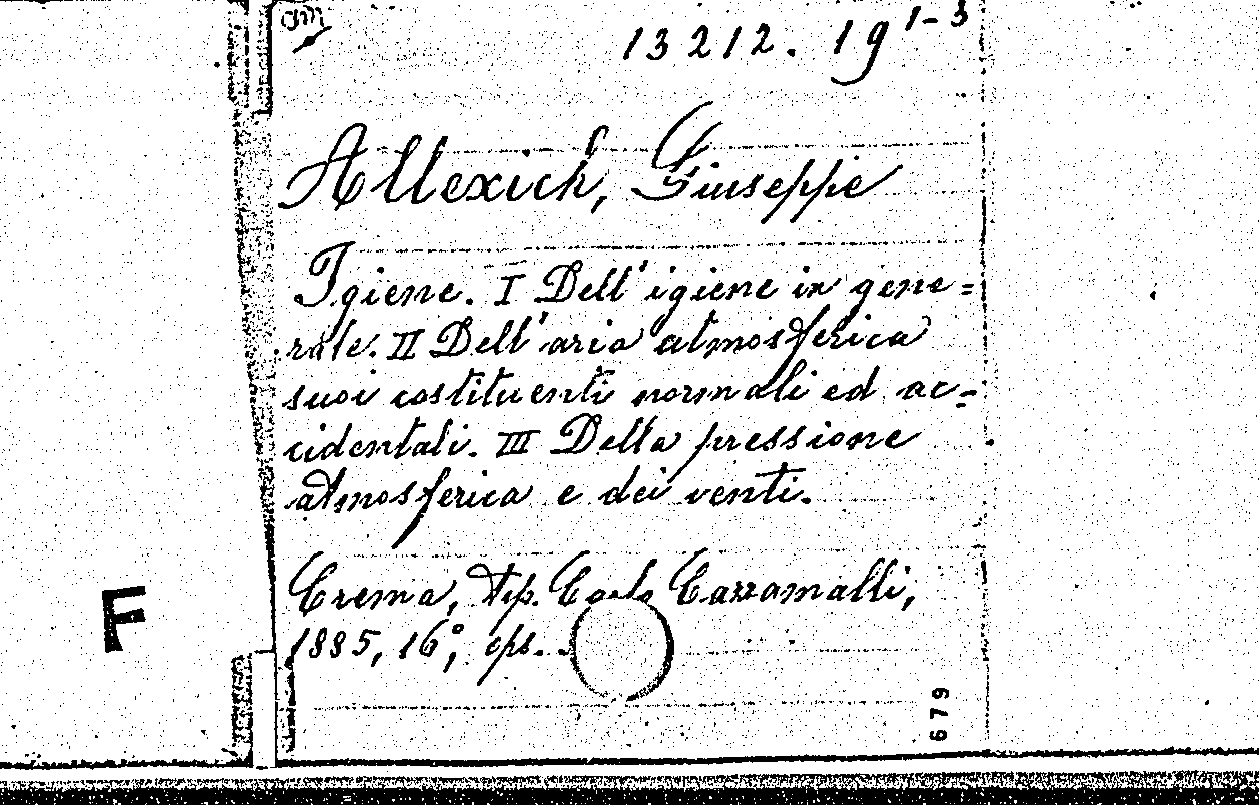 am
13212. 19 1-3
Allexich, Giuseppe
Igiene. I Dell'igiene in gene=
rale. II Dell'aria atmosferica
suoi costituenti normali ed ac=
cidentali. III Della pressione
atmosferica e dei venti.
Crema, tip. Carlo Cazzamalli,
1885, 16°,
F
679